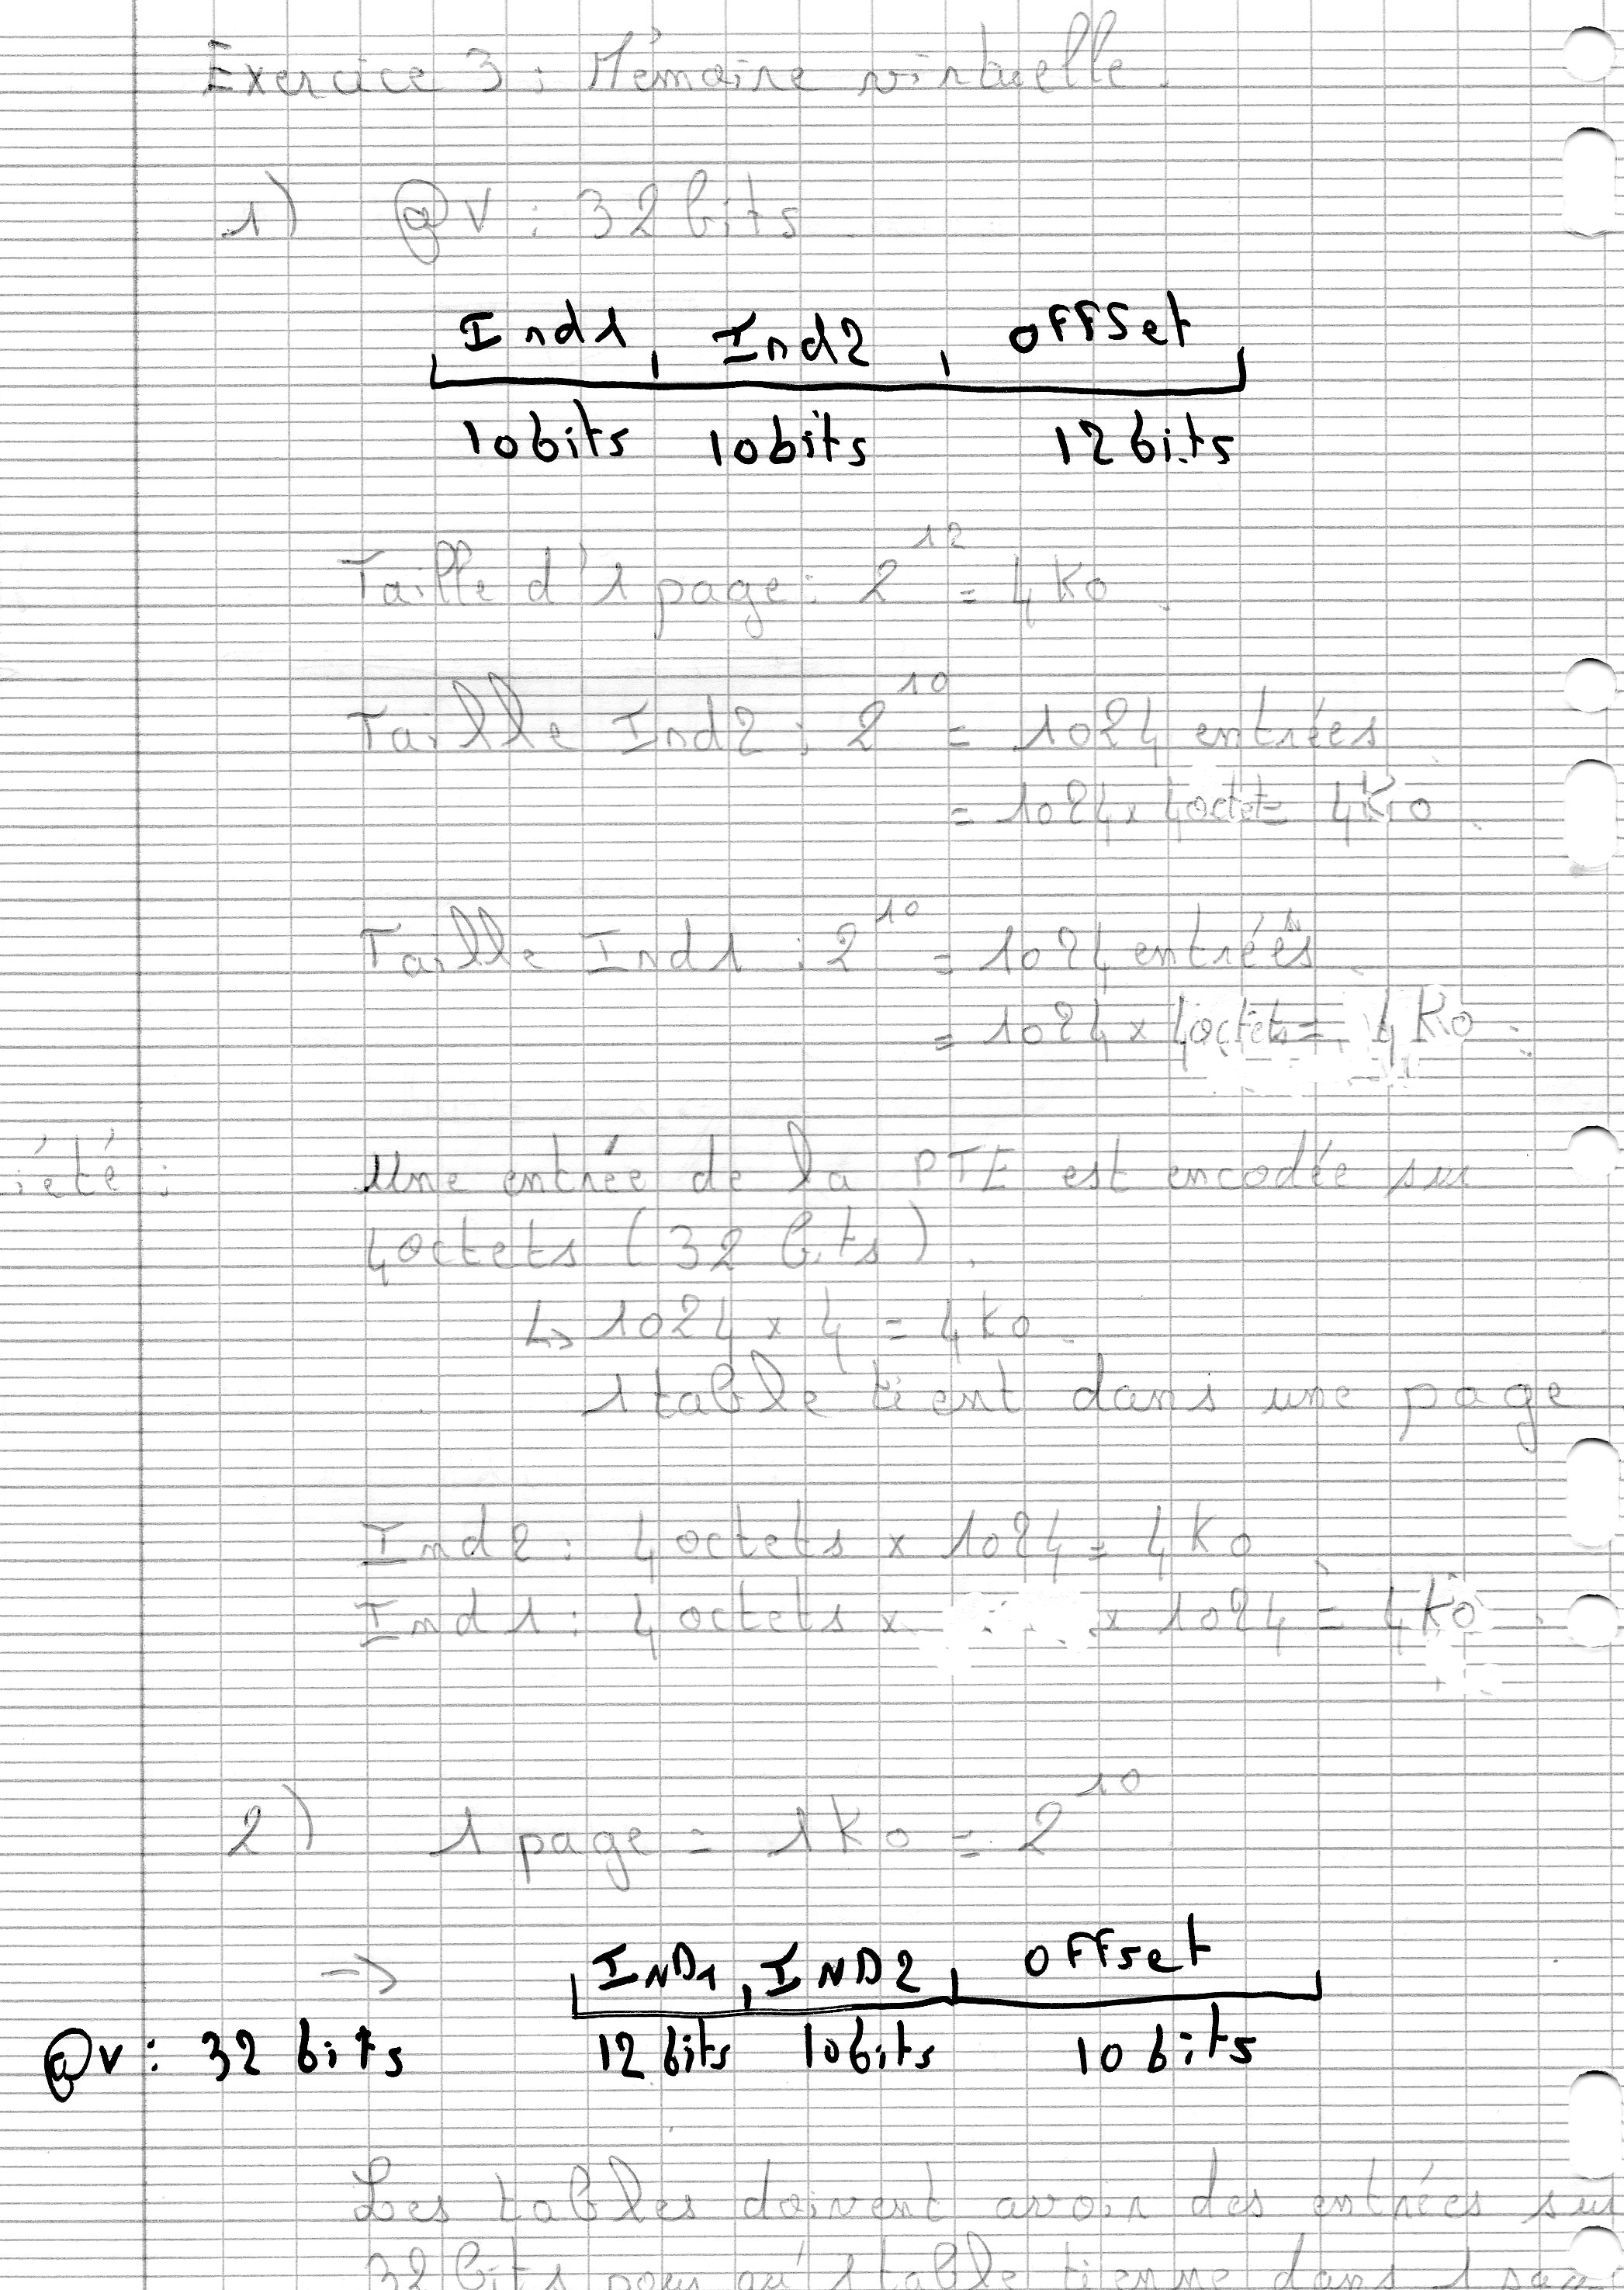 Exercice 3 : Mémoire virtuelle.
1) @V : 32 bits
Ind1 Ind2 offset
10bits 10bits 12bits
Taille d'1 page : 2^12 = 4 Ko.
Taille Ind2 : 2^10 = 1024 entrées
= 1024 x 4octet = 4Ko.
Taille Ind1 : 2^10 = 1024 entrées.
= 1024 x 4octets = 4 Ko.
iété : Une entrée de la PTE est encodée sur
4octets (32 bits).
↳ 1024 x 4 = 4 ko.
1 table tient dans une page
Ind2 : 4 octets x 1024 = 4 Ko
Ind1 : 4 octets x x 1024 = 4 Ko.
2) 1 page = 1 Ko = 2^10
→ IND1 IND2 offset
@v : 32 bits 12 bits 10bits 10 bits
Les tables doivent avoir des entrées sur
32 bits pour qu'1 table tienne dans 1 page